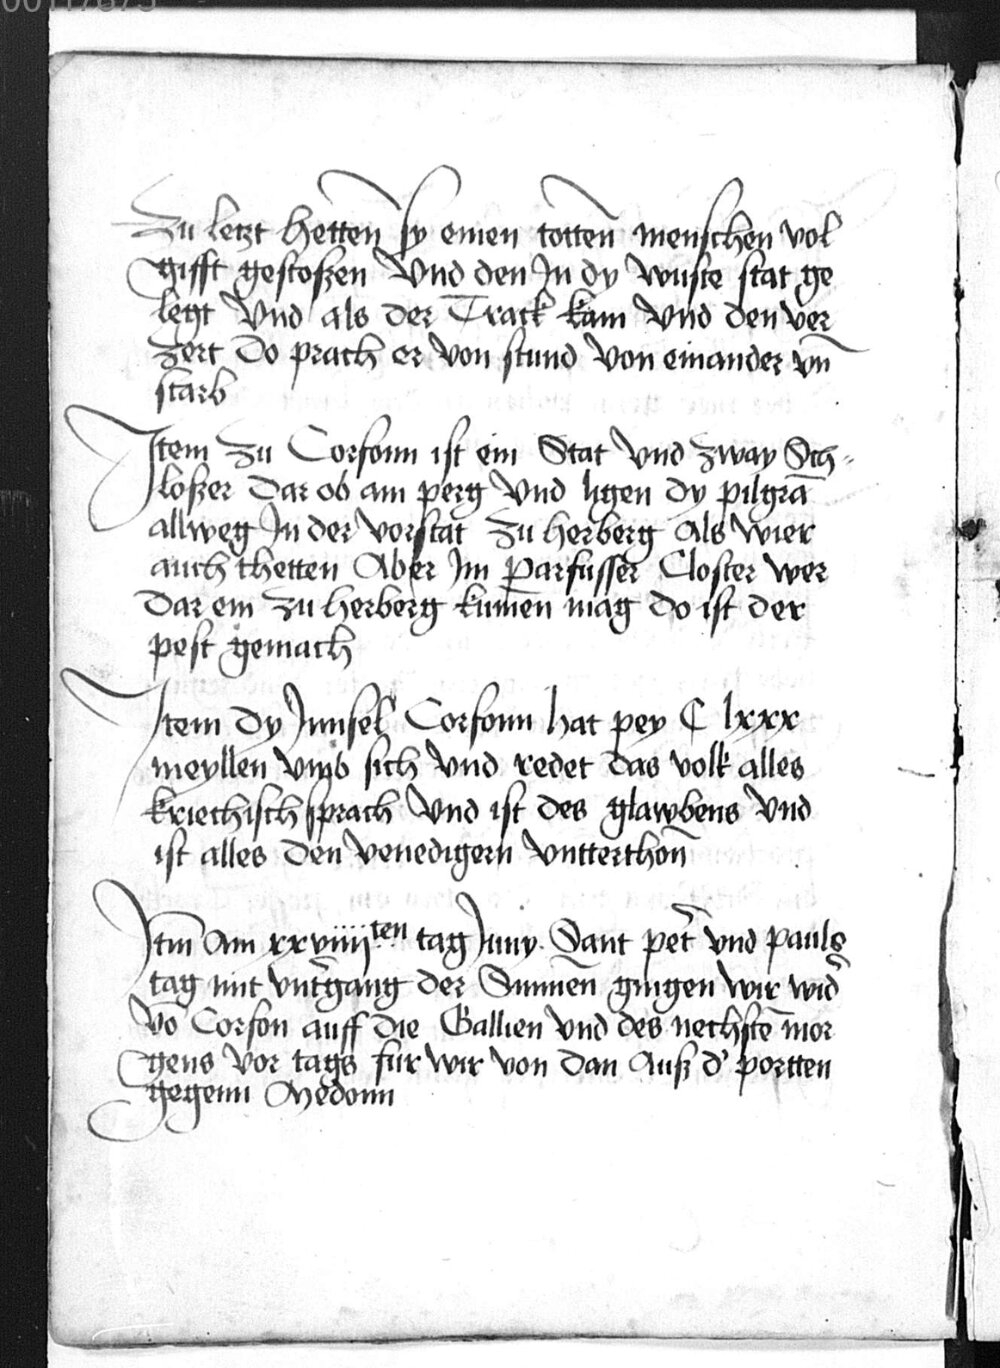 00117875
Zu letzt hetten sy einen totten menschen vol
gifft gestoßen Vnd den In dy wuste stat ge
legt Vnd als der Track kam Vnd den ver
zert Do prach er von stund von einander vn̄
starb
Item zu Corfonn ist ein Stat Vnd zway Sch-
loßer Dar ob am perg Vnd ligen dy pilgrā
allweg In der vorstat zu herberg Als wier
auch thetten Aber Im parfusser Closter wer
Dar ein zu herberg kumen mag Do ist der
pest gemach
Item dy Innsel Corfonn hat pey C lxxx
meyllen vmb sich Vnd redet das volk alles
kriechisch sprach Vnd ist des glawbens Vnd
ist alles den venedigern Vntterthon̄
Itm̄ Am xxviiijten tag Juny. Sant pet̄ vnd pauls
tag mit vnt̄gang der Sunnen gingen wir wid̄
vō Corfon auff die Gallien Vnd des nechstē mor
gens vor tags fur wir von dan Auß d' portten
gegenn Medonn